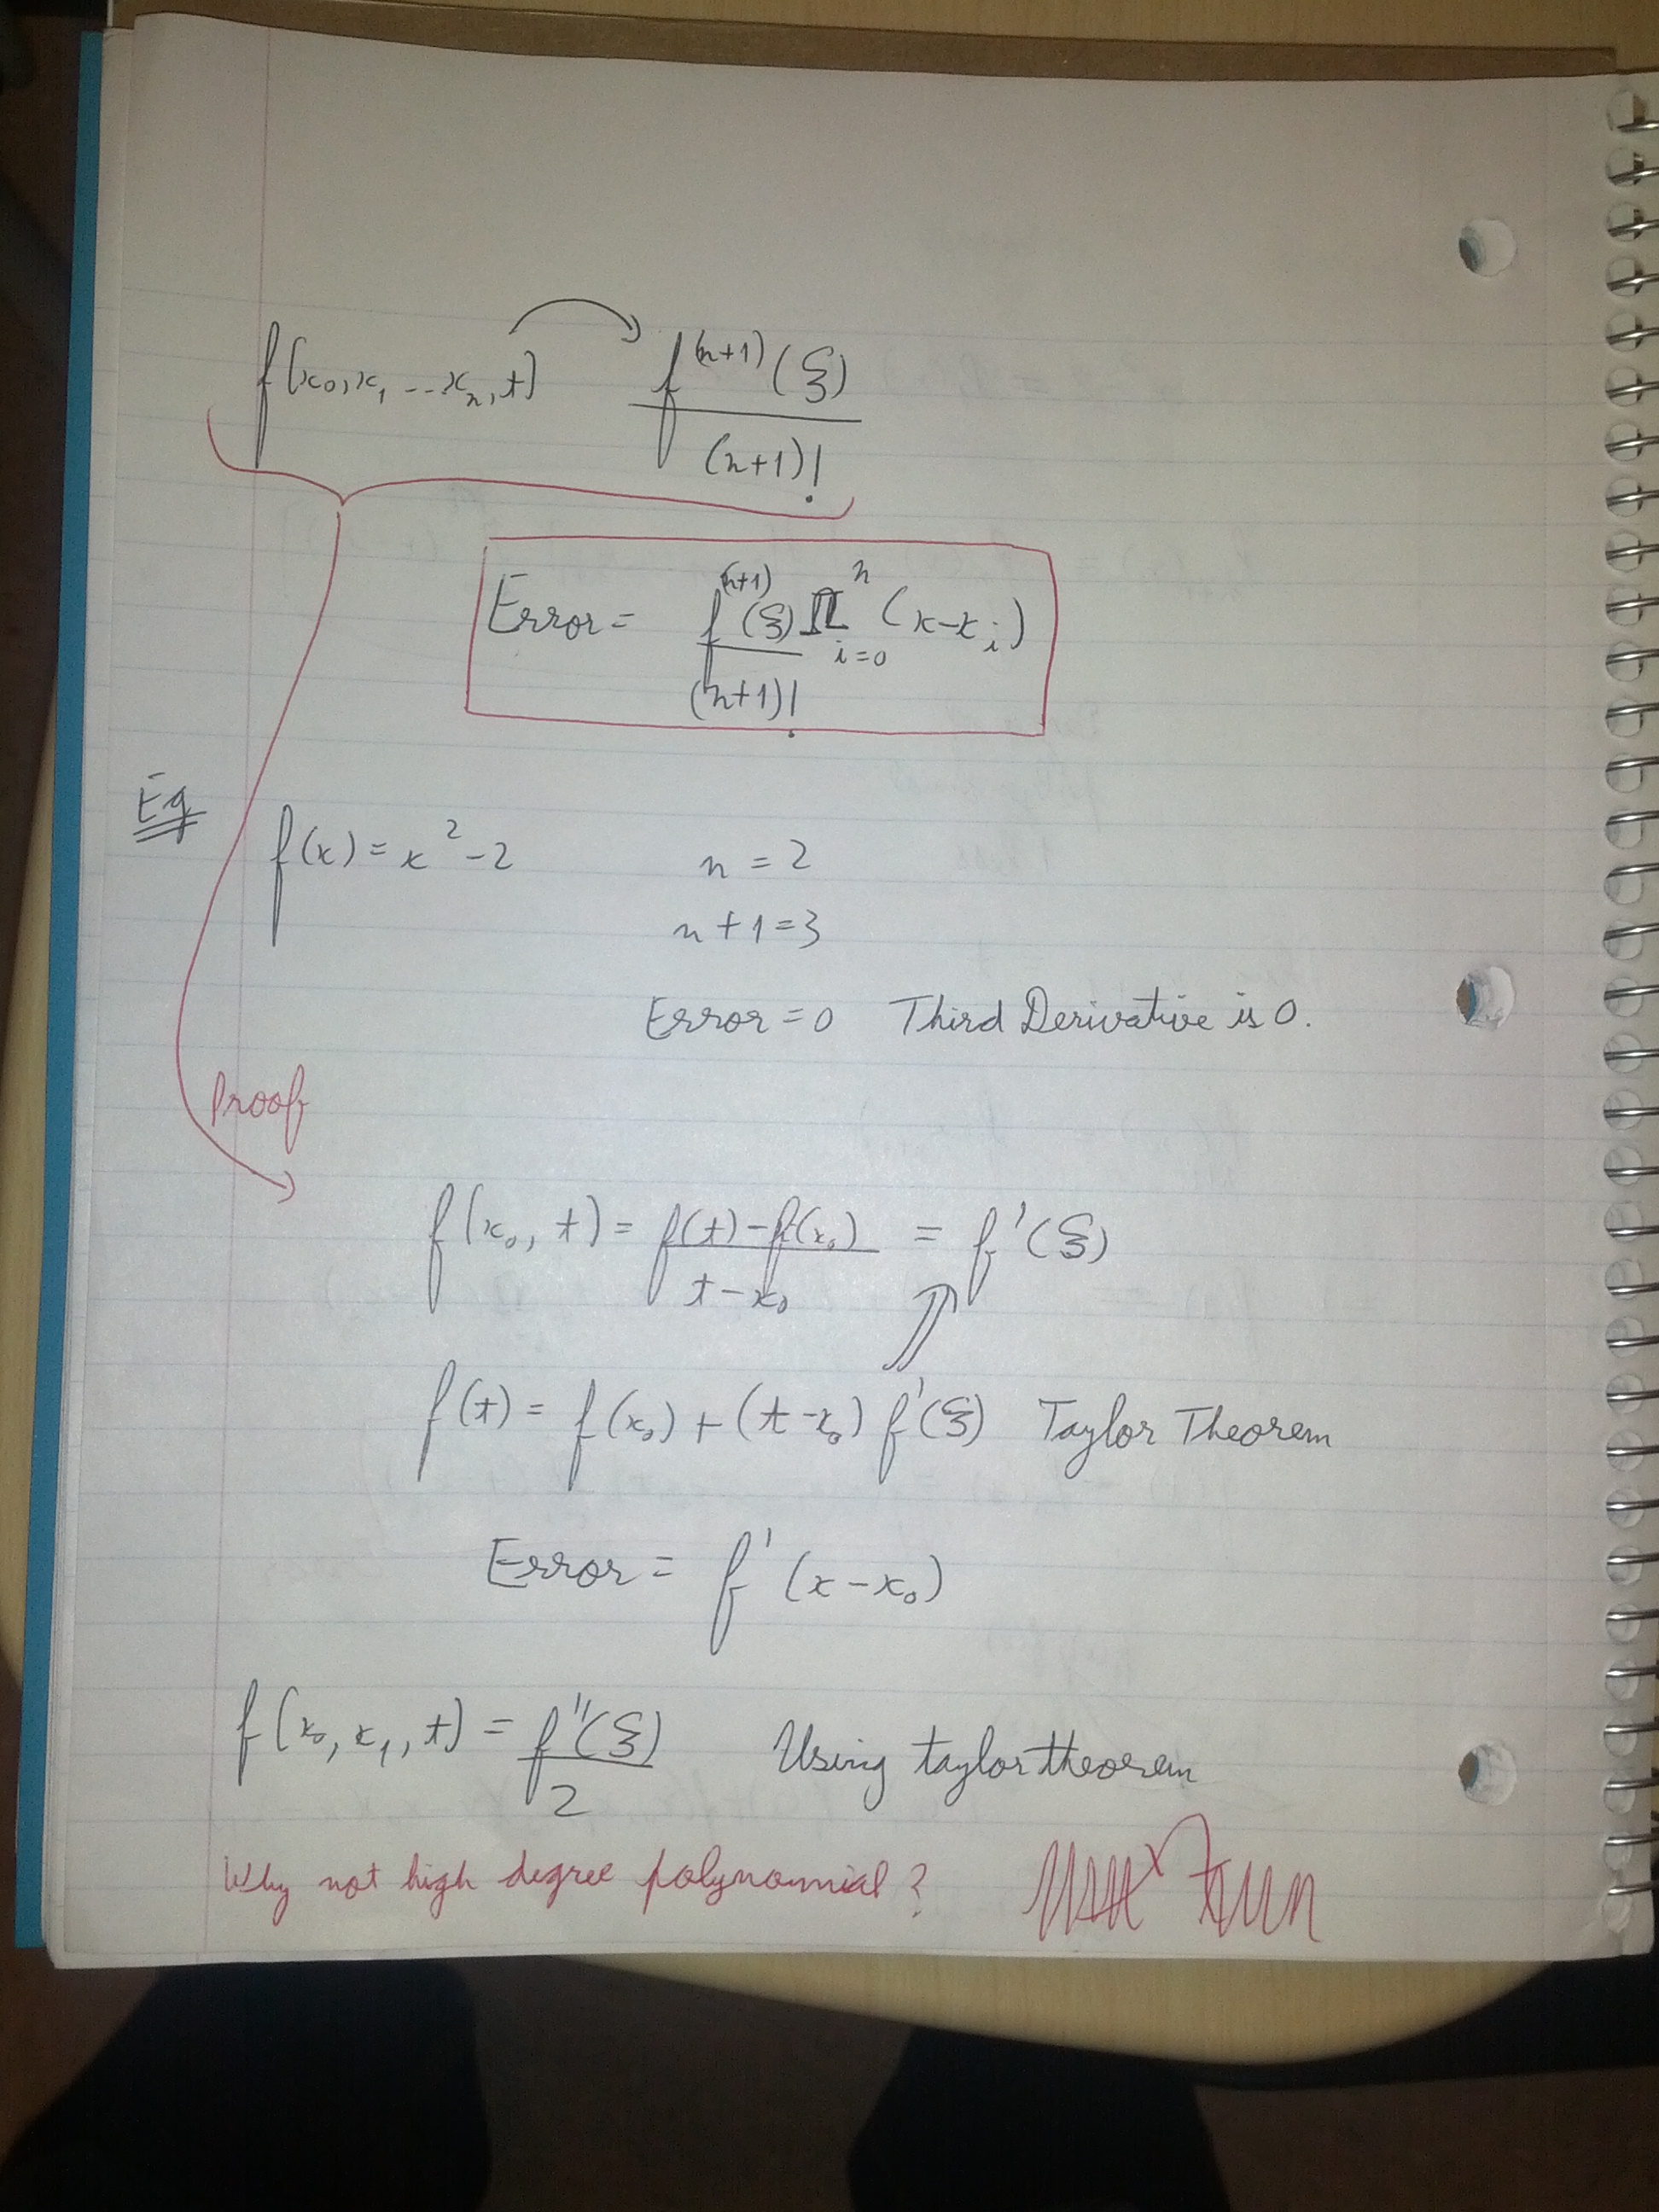 f[x₀,x₁ ...xₙ,t] f⁽ⁿ⁺¹⁾(ξ) / (n+1)!
Error = f⁽ⁿ⁺¹⁾(ξ) / (n+1)! Π_{i=0}^{n} (x-x_i)
Eg
f(x) = x² - 2 n = 2
n + 1 = 3
Error = 0 Third Derivative is 0.
Proof
f(x₀, t) = f(t) - f(x₀) / t - x₀ = f'(ξ)
f(t) = f(x₀) + (t - x₀) f'(ξ) Taylor Theorem
Error = f' (x - x₀)
f(x₀, x₁, t) = f''(ξ) / 2 Using taylor theorem
Why not high degree polynomial?